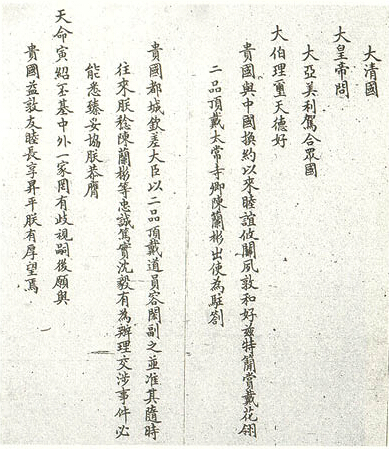 大清國
大皇帝問
大亞美利駕合眾國
大伯理璽天德好
貴國與中國換約以來睦誼攸關夙敦和好茲特簡賞戴花翎
二品頂戴太常寺卿陳蘭彬出使為駐劄
貴國都城欽差大臣以二品頂戴道員容閎副之並准其隨時
往來朕稔陳蘭彬等忠誠篤實沈毅有為辦理交涉事件必
能悉臻妥協朕恭膺
天命寅紹丕基中外一家罔有歧視嗣後願與
貴國益敦友睦長享昇平朕有厚望焉